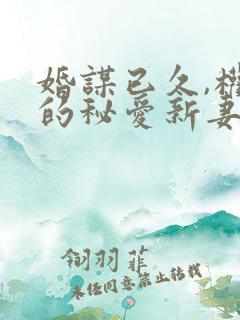 婚謀已久,權
的秘愛新妻
翎羽菲
未任同意禁止转载